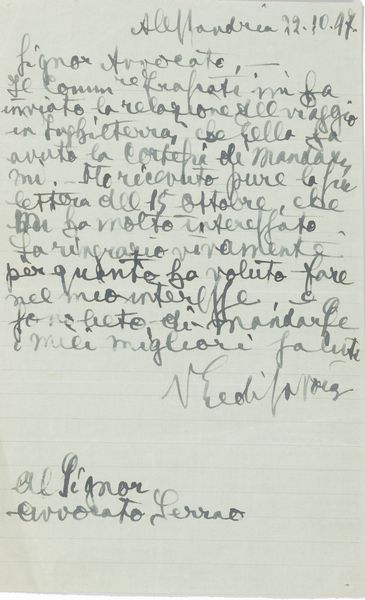 Alessandria 22.10.47.
Signor Avvocato, —
Il Comm.re Trafati mi ha
inviato la relazione del viaggio
in Inghilterra, che Ella ha
avuto la cortesia di mandar
mi. Ho ricevuto pure la sua
lettera del 15 ottobre, che
mi ha molto interessato
La ringrazio vivamente
per quanto ha voluto fare
nel mio interesse, e
sono lieto di mandarle
i miei migliori saluti
Al Signor
Avvocato Serrao